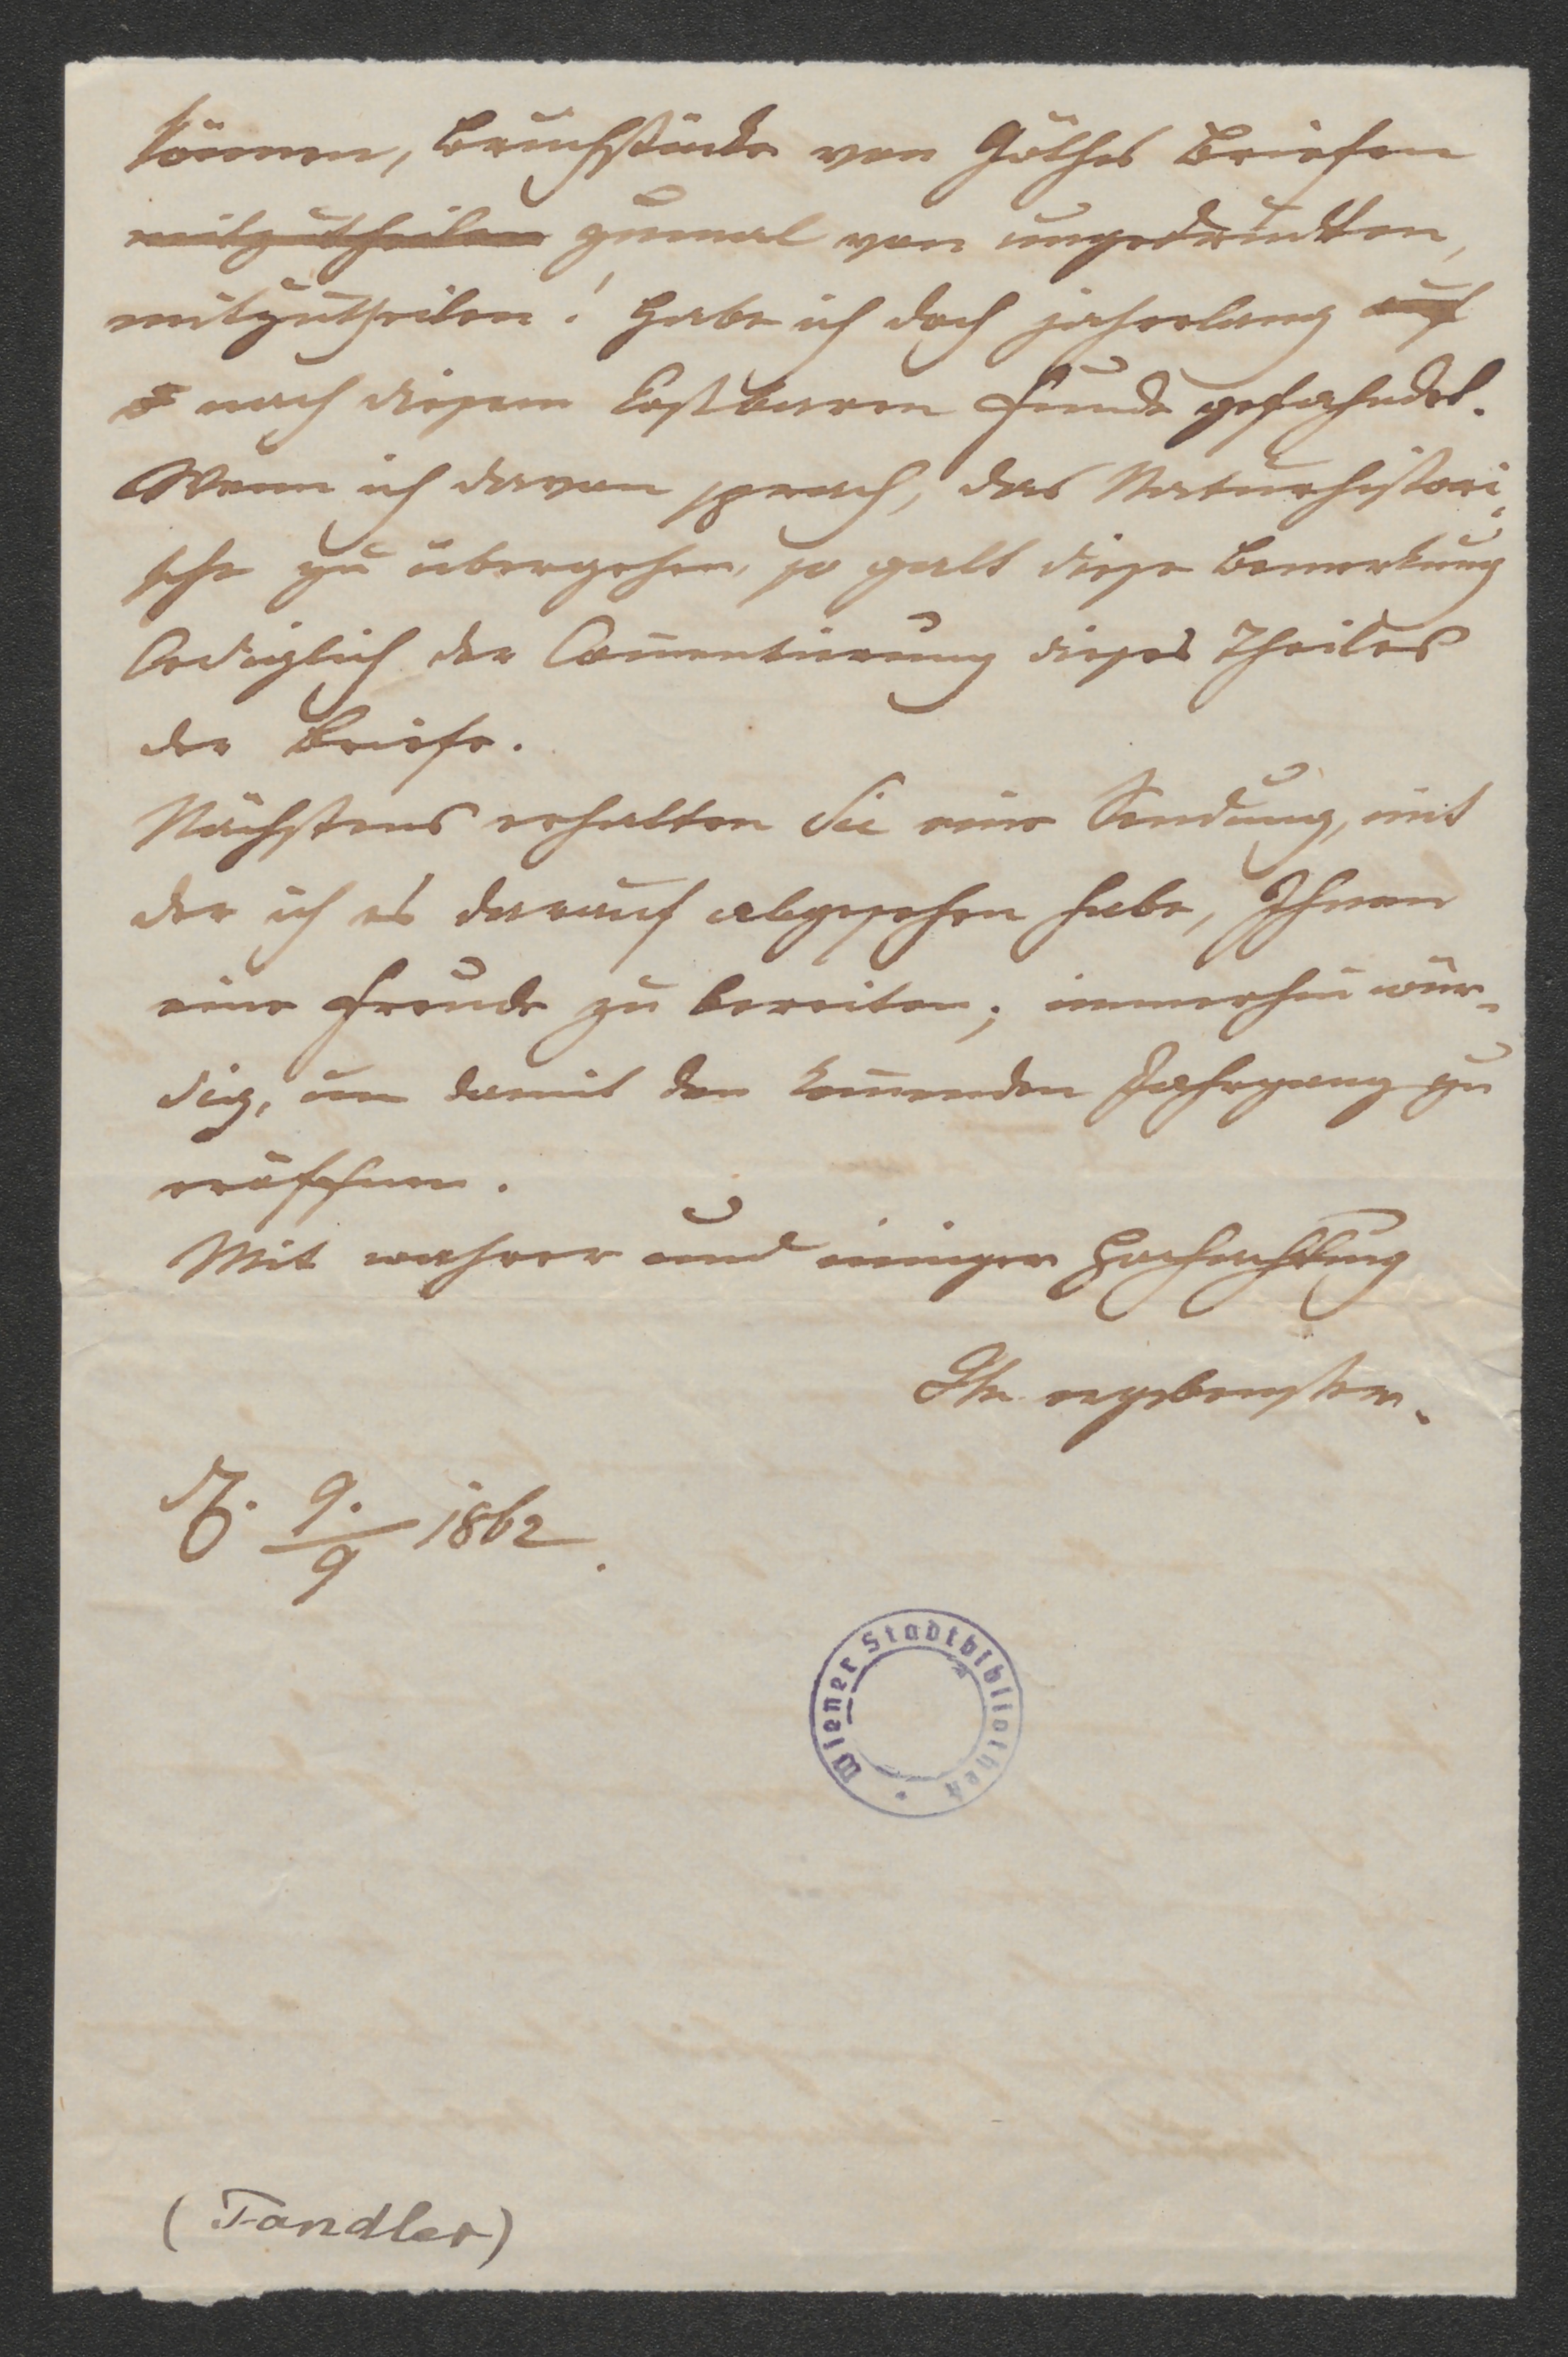 können, Bruchstücke von Göthes Briefen
mitzutheilen zumal von ungedruckten,
mitzutheilen! Habe ich doch jahrelang auf
nach diesem kostbaren Funde gefahndet.
Wenn ich davon sprach, das Naturhistori-
sche zu übergehen, so galt diese Bemerkung
lediglich der Com̄entierung dieses Theiles
der Briefe.
Nächstens erhalten Sie eine Sendung, mit
der ich es darauf abgesehen habe, Ihnen
eine Freude zu bereiten; immerhin wür-
dig, um damit den kom̄enden Jahrgang zu
eröffnen.
Mit wahrer und inniger Hochachtung
Ihr ergebenster.
9./9 1862.
Wiener Stadtbibliothek
(Tandler)